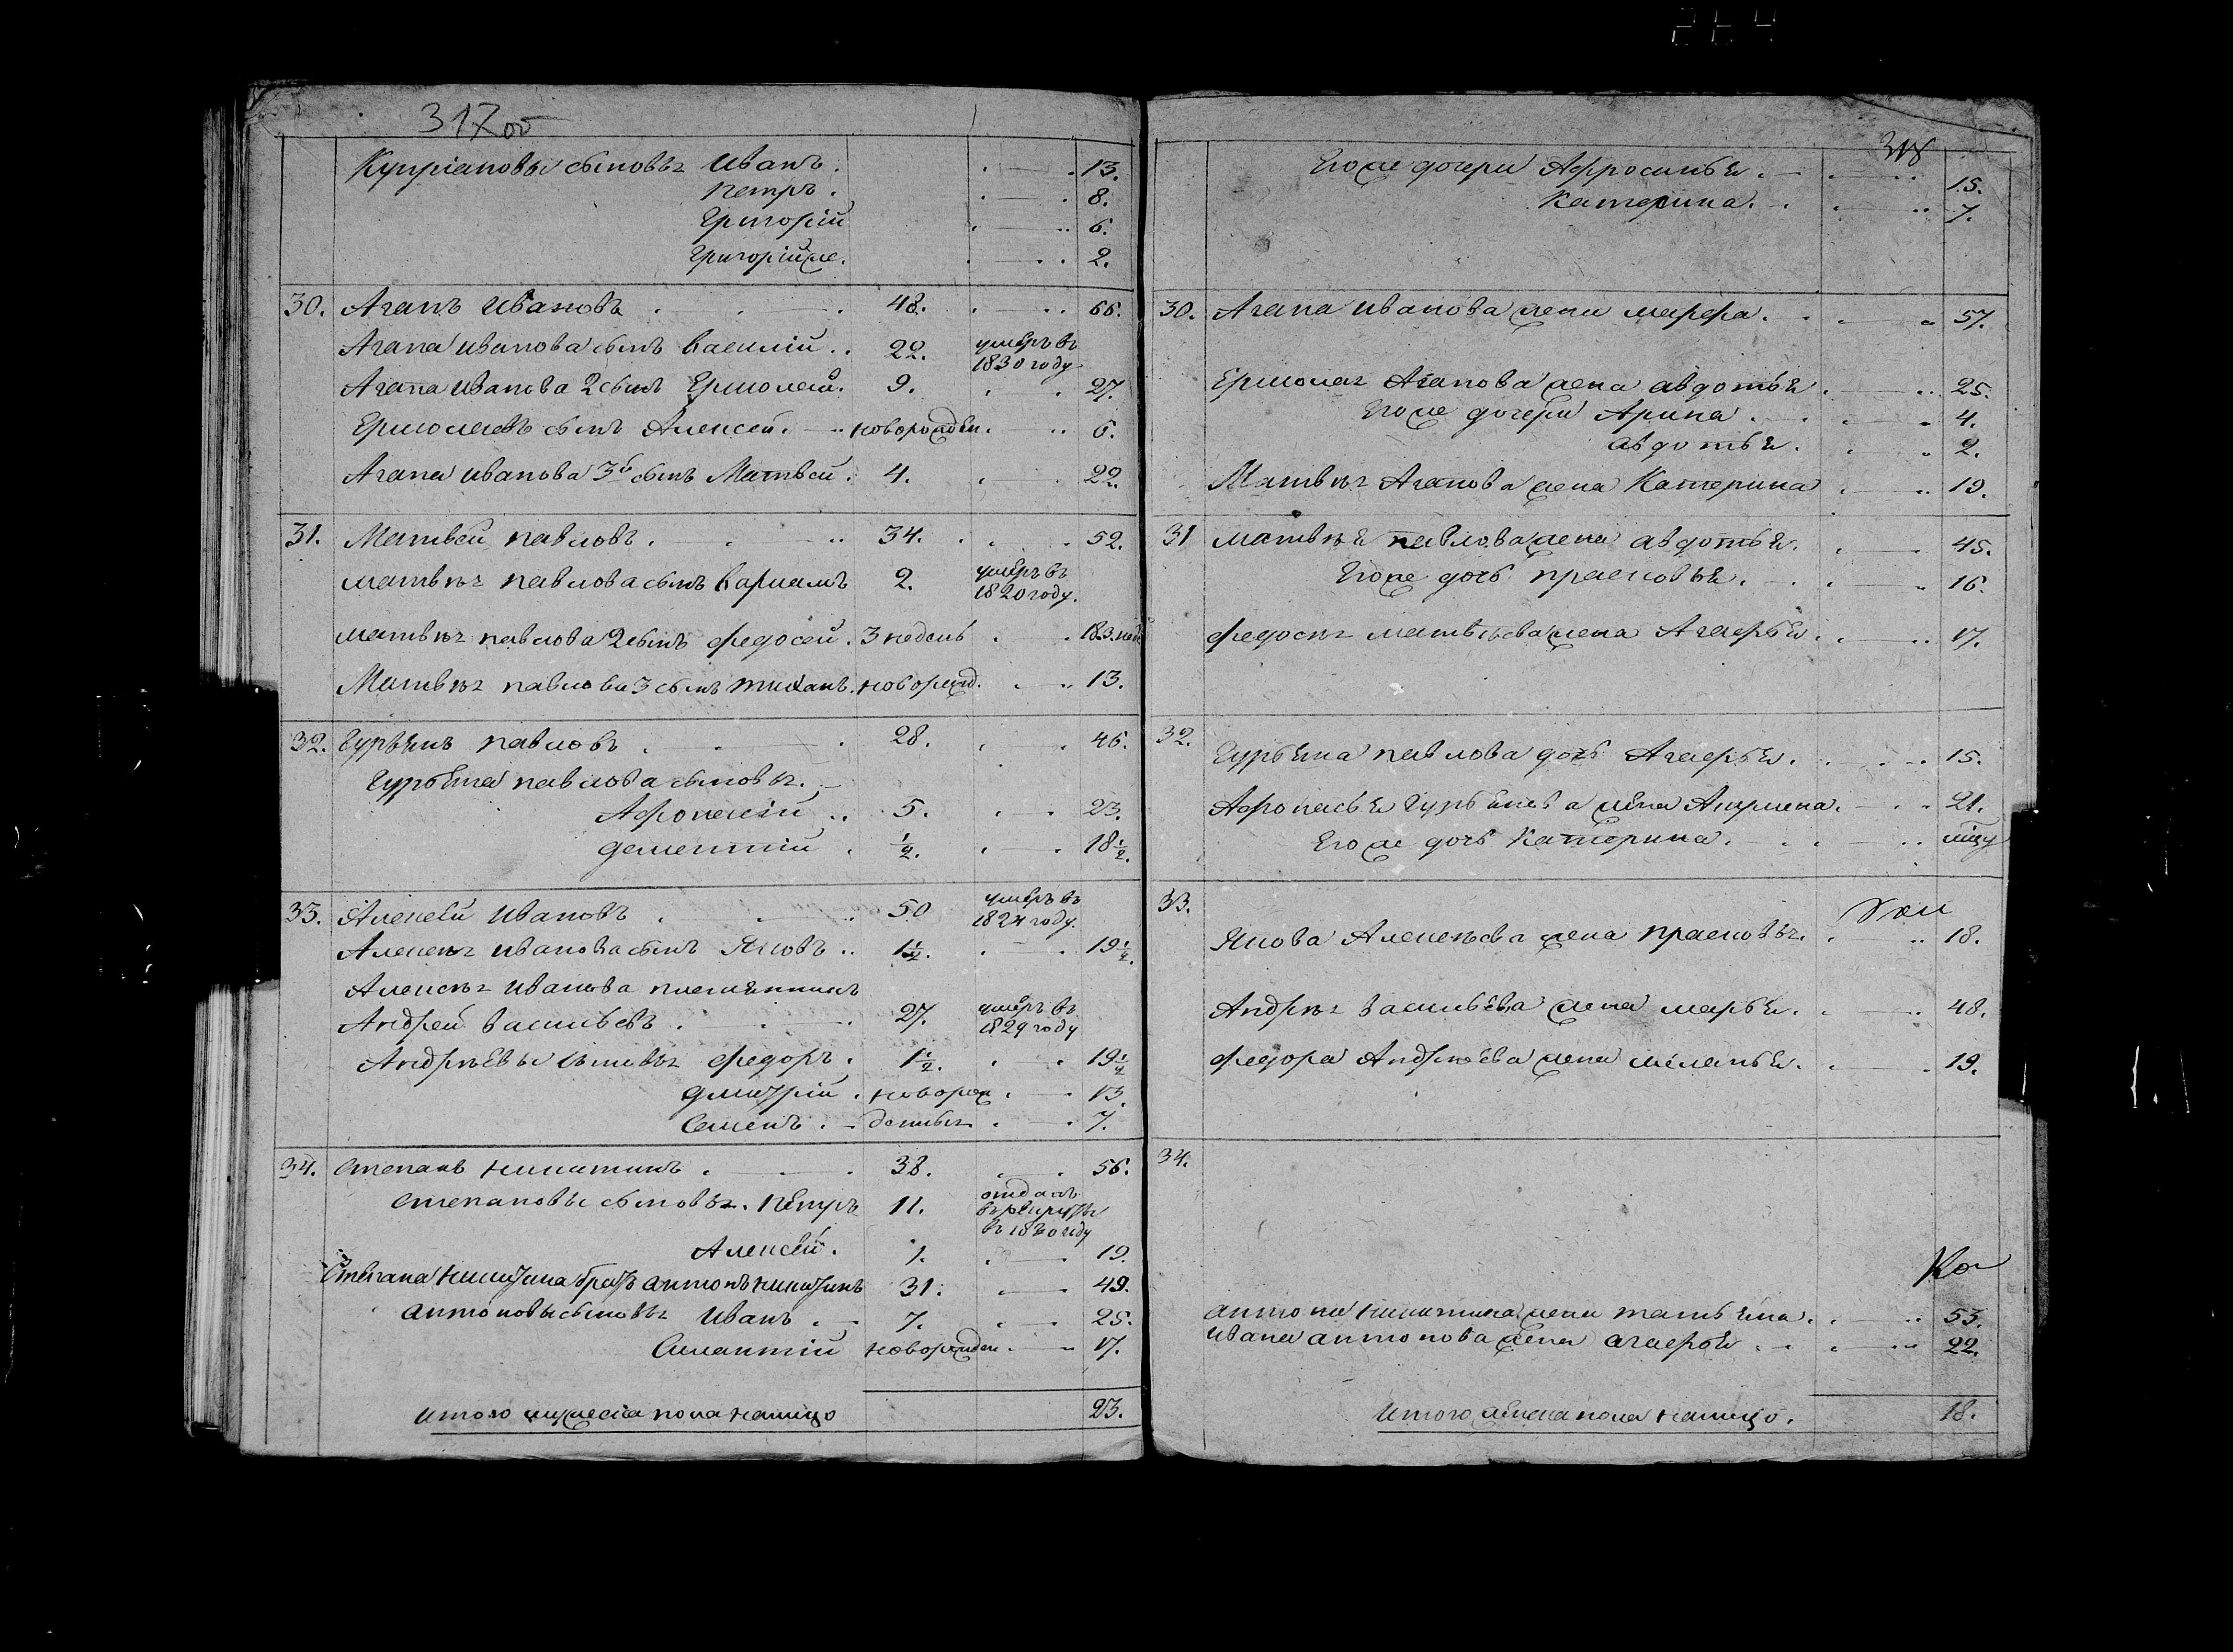 317 об
Купріяновы сыновья Иванъ. 13.
Петръ. 8.
Григорій 6.
Григорій же. 2.
30. Агапъ Ивановъ 48. 66.
Агапа Иванова сынъ Василій 22. умеръ въ 1830 году
Агапа Иванова 2 сынъ Ермолай. 9. 27.
Ермолаевъ сынъ Алексей. новорожден. 6.
Агапа Иванова 3й сынъ Матвей. 4. 22.
31. Матвей Павловъ. 34. 52.
Матвея Павлова сынъ Варламъ 2. умеръ въ 1820 году.
Матвея Павлова 2 сынъ Федосей. 3 недель 18. 3. нед
Матвея Павлова 3 сынъ новорожд. 13.
32. Гурьянъ Павловъ 28. 46.
Гурьяна Павлова сыновья.
Афонасій 5. 23.
Дементій ½. 18½.
33. Алексей Ивановъ 50 умеръ въ 1824 году.
Алексея Иванова сынъ Яковъ 1½. 19½.
Алексея Иванова племянникъ
Андрей Васильевъ 27. умеръ въ 1829 году
Андреевы сыновья Федоръ. 1½. 19½
Дмитрій. новорож. 13.
Семенъ. 7.
34. Степанъ Никитинъ 38. 56.
Степановы сыновья. Петръ 11. отданъ въ рекруты въ 1820 году
Алексей. 1. 19.
Степана Никитина братъ Антонъ Никитинъ 31. 49.
Антоновы сыновья Иванъ 7. 25.
новорожден. 17.
Итого мужеска пола налицо 23.
318
Его же дочери Афросинья 15.
Катерина. 7.
30. Агапа Иванова жена Марфа. 57.
Ермолая Агапова жена Авдотья 25.
Его же дочери Арина 4.
Авдотья. 2.
Матвея Агапова жена Катерина 19.
31 Матвея Павлова жена Авдотья. 45.
Его же дочь Прасковья. 16.
Федосея Матвеева жена Агафья 17.
32. Гурьяна Павлова дочь Агафья. 15.
Афонасья Гурьянева жена Акулина. 21.
Его же дочь Катерина.
33. Якова Алексеева жена Прасковья. 18.
Андрея Васильева жена Марья. 48.
Федора Андреева жена Меланья. 19.
34.
Антона Никитина жена Татьяна. 53.
Ивана Антонова жена Агафья 22.
Итого женска пола налицо. 18.